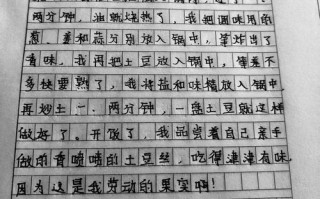 两分钟，油就烧热了，我把调味用的
葱、姜和蒜分别放入锅中，等炸出了
香味，我再把土豆放入锅中，等差不
多快要熟了，我将盐和味精放入锅中，
再炒上一、两分钟，一盘土豆就这样
做好了。开饭了，我品尝着自己亲手
做的香喷喷的土豆丝，吃得津津有味，
因为这是我劳动的果实啊！